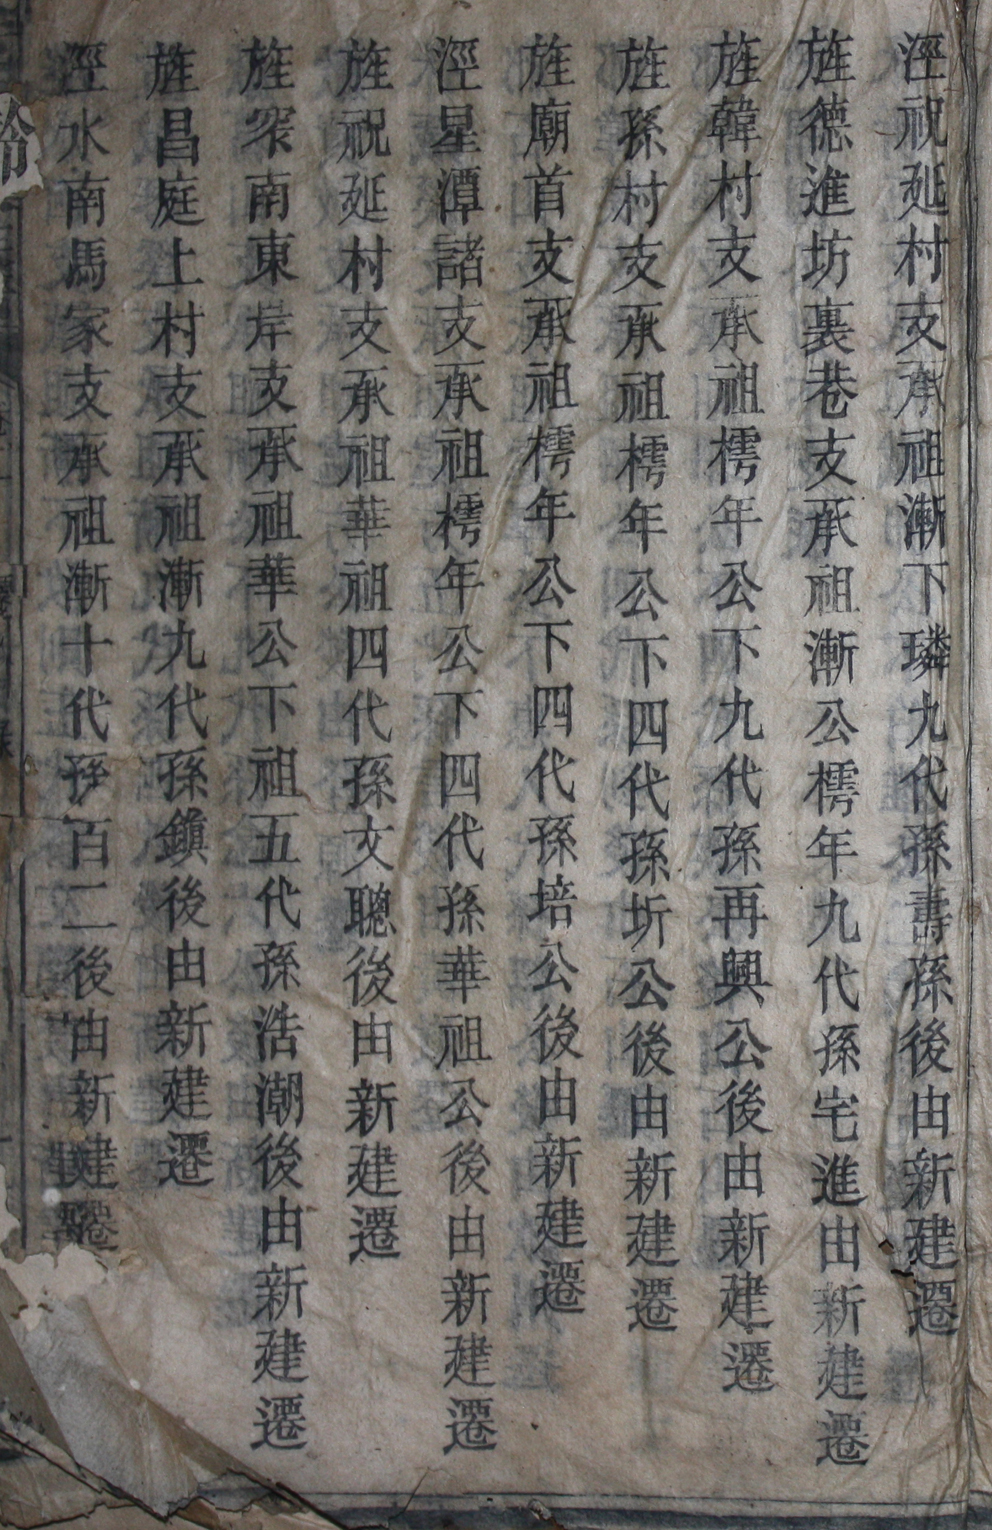 涇祝延村支承祖漸下璘九代孫壽孫後由新建遷
旌德進坊裏巷支承祖漸公樗年九代孫宅進由新建遷
旌韓村支承祖樗年公下九代孫再興公後由新建遷
旌孫村支承祖樗年公下四代孫圻公後由新建遷
旌廟首支承祖樗年公下四代孫培公後由新建遷
涇星潭諸支承祖樗年公下四代孫華祖公後由新建遷
旌祝延村支承祖華祖四代孫文聰後由新建遷
旌翠南東岸支承祖華公下祖五代孫浩潮後由新建遷
旌昌庭上村支承祖漸九代孫鎭後由新建遷
涇水南馮家支承祖漸十代孫百二後由新建遷